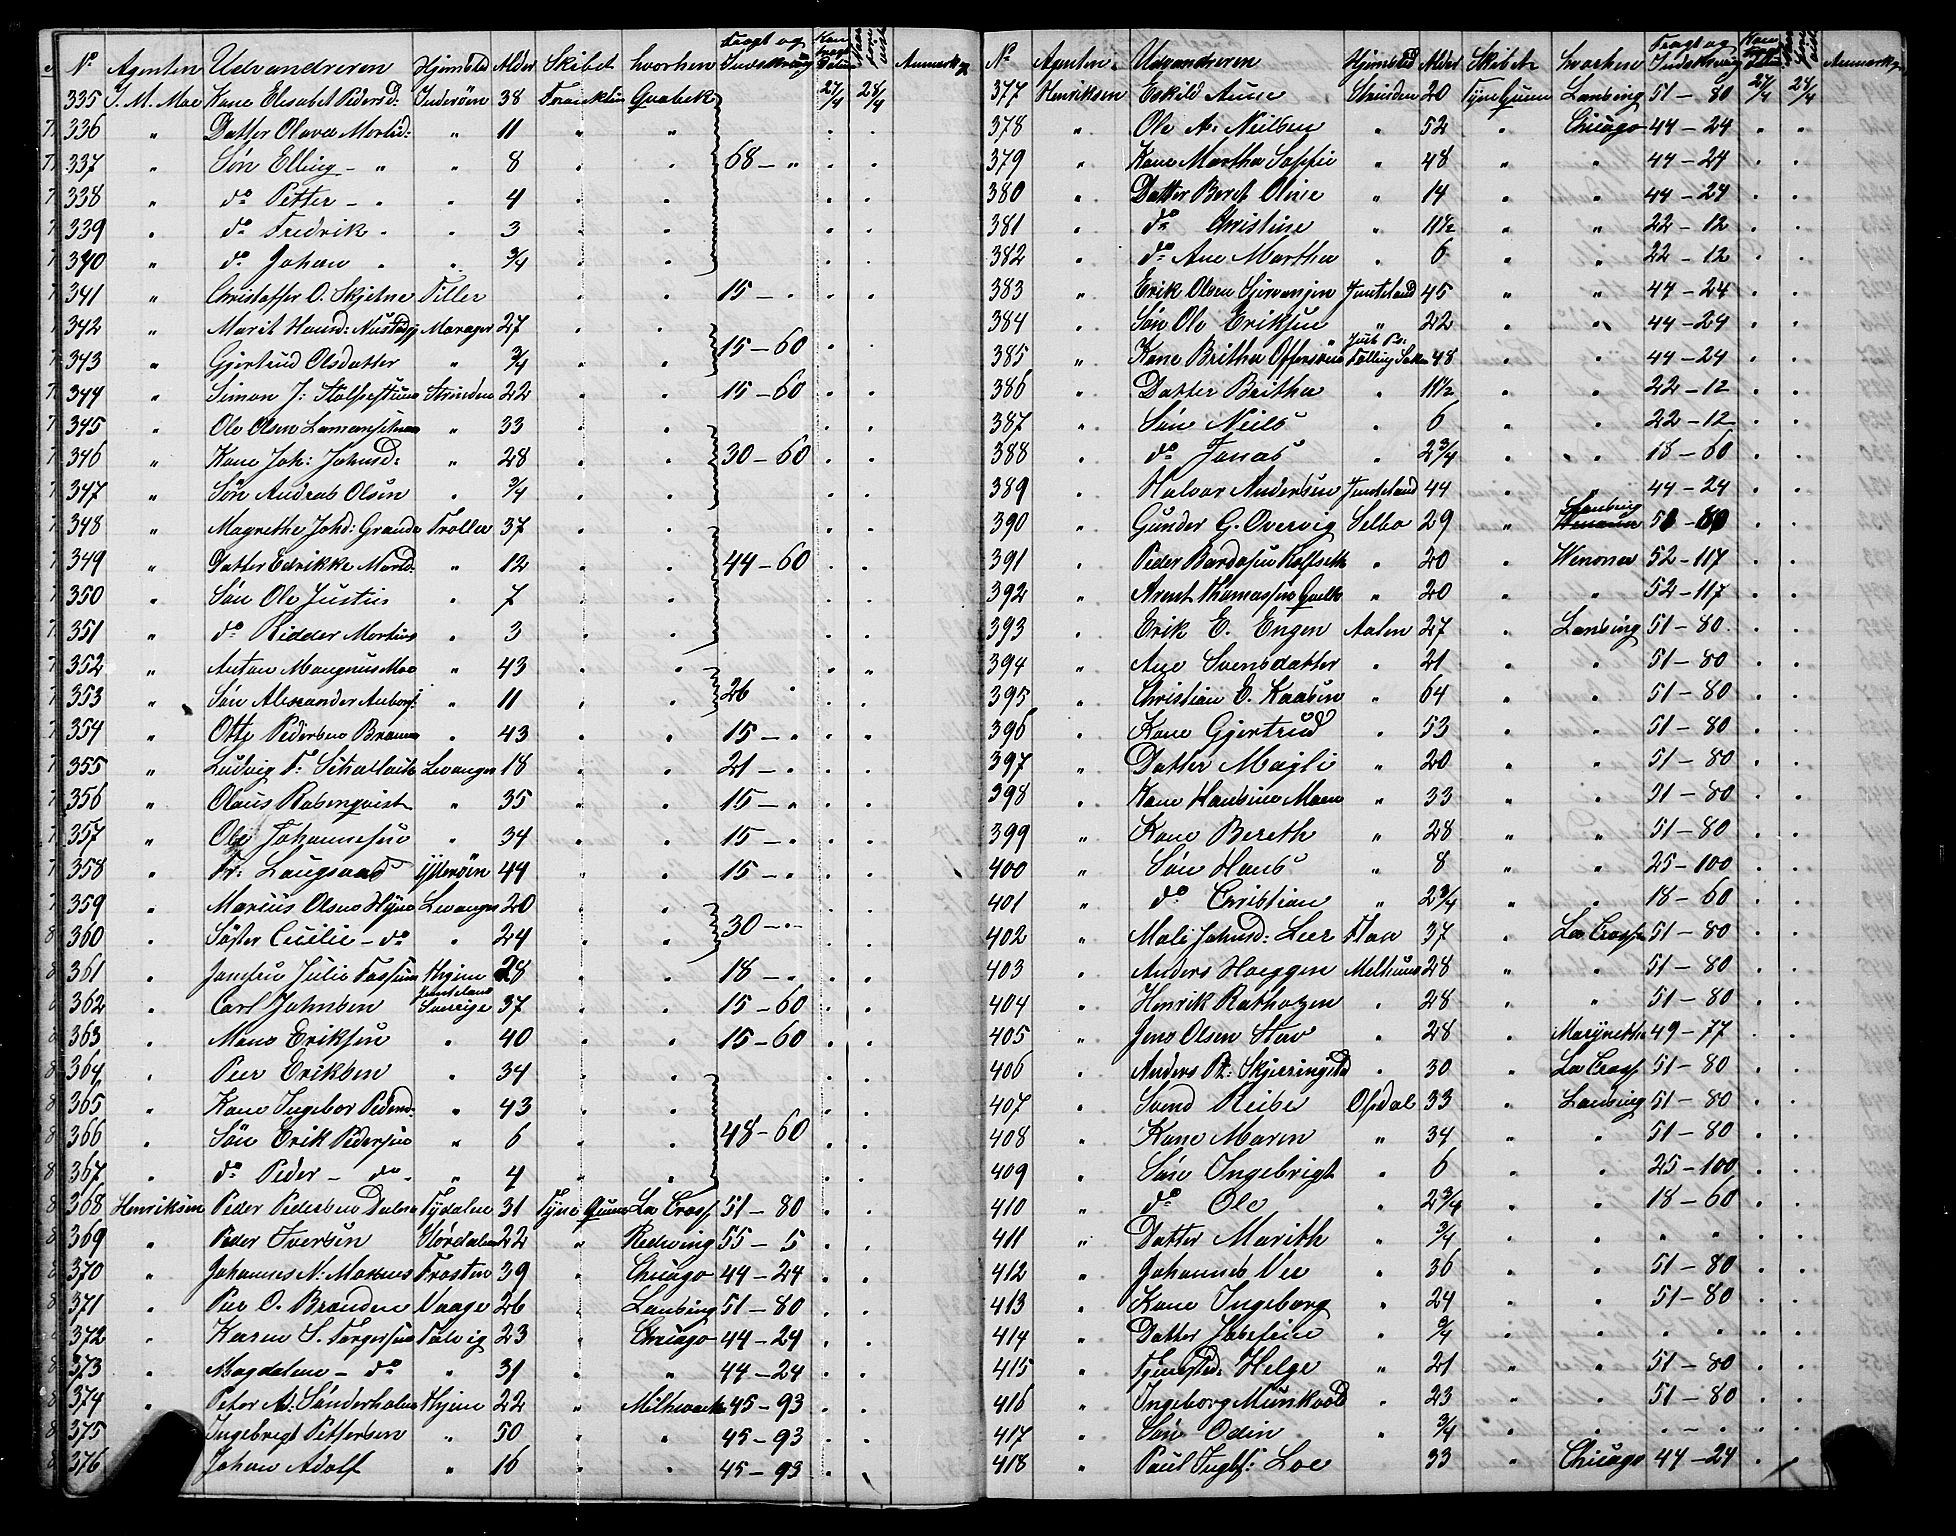 No Agenten Udvandreren Hjemsted Alder Skibet hvorhen Fragt og Indskrivng Anmærkng
335 J. M. Moe Kone Elisabet Pedersd: Inderøen 38 Franklin Quebek 27/4 28/4
336 " Datter Olava Mortsd: " 11 " "
337 " Søn Elling - " " 8 " " 68 - "
338 " do Petter - " " 4 " "
339 " do Fredrik " " 3 " "
340 " do Johan " " 3/4 " "
341 " Christoffer O. Skjetne Tiller " " 15 - "
342 " Marit Hansd: 27 " "
343 " Gjertrud Olsdatter " 3/4 " " 15 - 60
344 " Simon J: Strinden 22 " " 15 - 60
345 " Ole Olsen " 33 " "
346 " Kone Joh: Johnsd: " 28 " " 30 - 60
347 " Søn Andreas Olsen " 3/4 " "
348 " Magrethe Johd: Grande Troller 37 " "
349 " Datter Edrikke " 12 " " 44 - 60
350 " Søn Ole Justin " 7 " "
351 " do Ridder Mortins " 3 " "
352 " Anton Mangnus Moe " 43 " "
353 " Søn Alexander " 11 " " 26 "
354 " Otto Pedersen " 43 " " 15 - "
355 " Ludvig F: Levanger 18 " " 21 - "
356 " Olaus Rosenqvist " 35 " " 15 - "
357 " Ole Johannesen " 34 " " 15 - "
358 " Fr: Laugsand Ytterøen 44 " " 15 - "
359 " Marius Olsen Levanger 20 " "
360 " Søster Cecilie - do " 24 " " 30 - "
361 " Jomfru Julie Thjem 28 " " 18 - "
362 " Carl Johnsen Jemteland Sverige 37 " " 15 - 60
363 " Mons Eriksen " 40 " " 15 - 60
364 " Peer Eriksen " 34 " "
365 " Kone Ingebor Pedersd: " 43 " "
366 " Søn Erik Pedersen " 6 " " 48 - 60
367 " do Peder - do " 4 " "
368 Henriksen Peder Pedersen Tydalen 31 Tyne Queen La Cross 51 - 80
369 " Peder Iversen Størdalen 22 " Redwing 55 - 5
370 " Johannes N: Frosten 39 " Chicago 44 - 24
371 " Peer O. Branden Vaage 26 " Lansing 51 - 80
372 " Karen S. Torgersen 23 " Chicago 44 - 24
373 " Magdalene - do " 31 " " 44 - 24
374 " Peter A: Sønderholm Thjem 22 " Milhvauk 45 - 93
375 Ingebrigt Pettersen " 50 " " 45 - 93
376 Johan Adolf " 16 " " 45 - 93
No Agenten Udvandreren Hjemsted Alder Skibet hvorhen Fragt og Indskrivng Anmærkng
377 Henriksen Eskild Aune Strinden 20 Tyne Queen Lansing 51 - 80 27/4 28/4
378 " Ole A: Neilsen " 52 " Chicago 44 - 24
379 " Kone Martha Soffie " 48 " " 44 - 24
380 " Datter Beret Oline " 14 " " 44 - 24
381 " do Christine " 11 1/2 " " 22 - 12
382 " do Ane Martha " 6 " " 22 - 12
383 " Erik Olsen Jemteland 45 " " 44 - 24
384 " Søn Ole Eriksen " 22 " " 44 - 24
385 " Kone Britha 48 " " 44 - 24
386 " Datter Britha " 11 1/2 " " 22 - 12
387 " Søn Neils " 6 " " 22 - 12
388 " do Jonas " 2 3/4 " " 18 - 60
389 " Halvor Andersen Jemteland 44 " " 44 - 24
390 " Gunder G. Overvig Selbo 29 " Lansing
391 " Peder Bardosen Rolfseth " 20 " Wenona 52 - 117
392 " Arent Thomassen " 20 " " 52 - 117
393 " Erik E. Engen Aalen 27 " Lansing 51 - 80
394 " Ane Svensdatter " 21 " " 51 - 80
395 " Christian E. Kaasen " 64 " " 51 - 80
396 " Kone Gjertrud " 53 " " 51 - 80
397 " Datter Magli " 20 " " 51 - 80
398 " Kone Hansine Moen " 33 " " 51 - 80
399 " Kone Bereth " 28 " " 51 - 80
400 " Søn Hans " 8 " " 25 - 100
401 " do Christian " 2 3/4 " " 18 - 60
402 " Mali Johnsd: Leer Flaa 37 " La Cross 51 - 80
403 " Anders Hoeggen Melhuus 28 " " 51 - 80
404 " Henrik Rathogen " 28 " " 51 - 80
405 " Jens Olsen Stav " 28 " 49 - 77
406 " Anders Pt: " 30 " La Cross 51 - 80
407 " Svend Reibe Opdal 33 " Lansing 51 - 80
408 " Kone Maren " 34 " " 51 - 80
409 " Søn Ingebrigt " 6 " " 25 - 100
410 " do Ole " 2 3/4 " " 18 - 60
411 " Datter Marith " 3/4 " " " "
412 " Johannes Vee " 36 " " 51 - 80
413 " Kone Ingeborg " 24 " " 51 - 80
414 " Datter " 3/4 " " " "
415 " Helge " 21 " " 51 - 80
416 " Ingeborg Munkvold " 23 " " 51 - 80
417 " Søn Odin " 3/4 " " " - "
418 " Paul Ingbs: Loe " 33 " Chicago 44 - 24